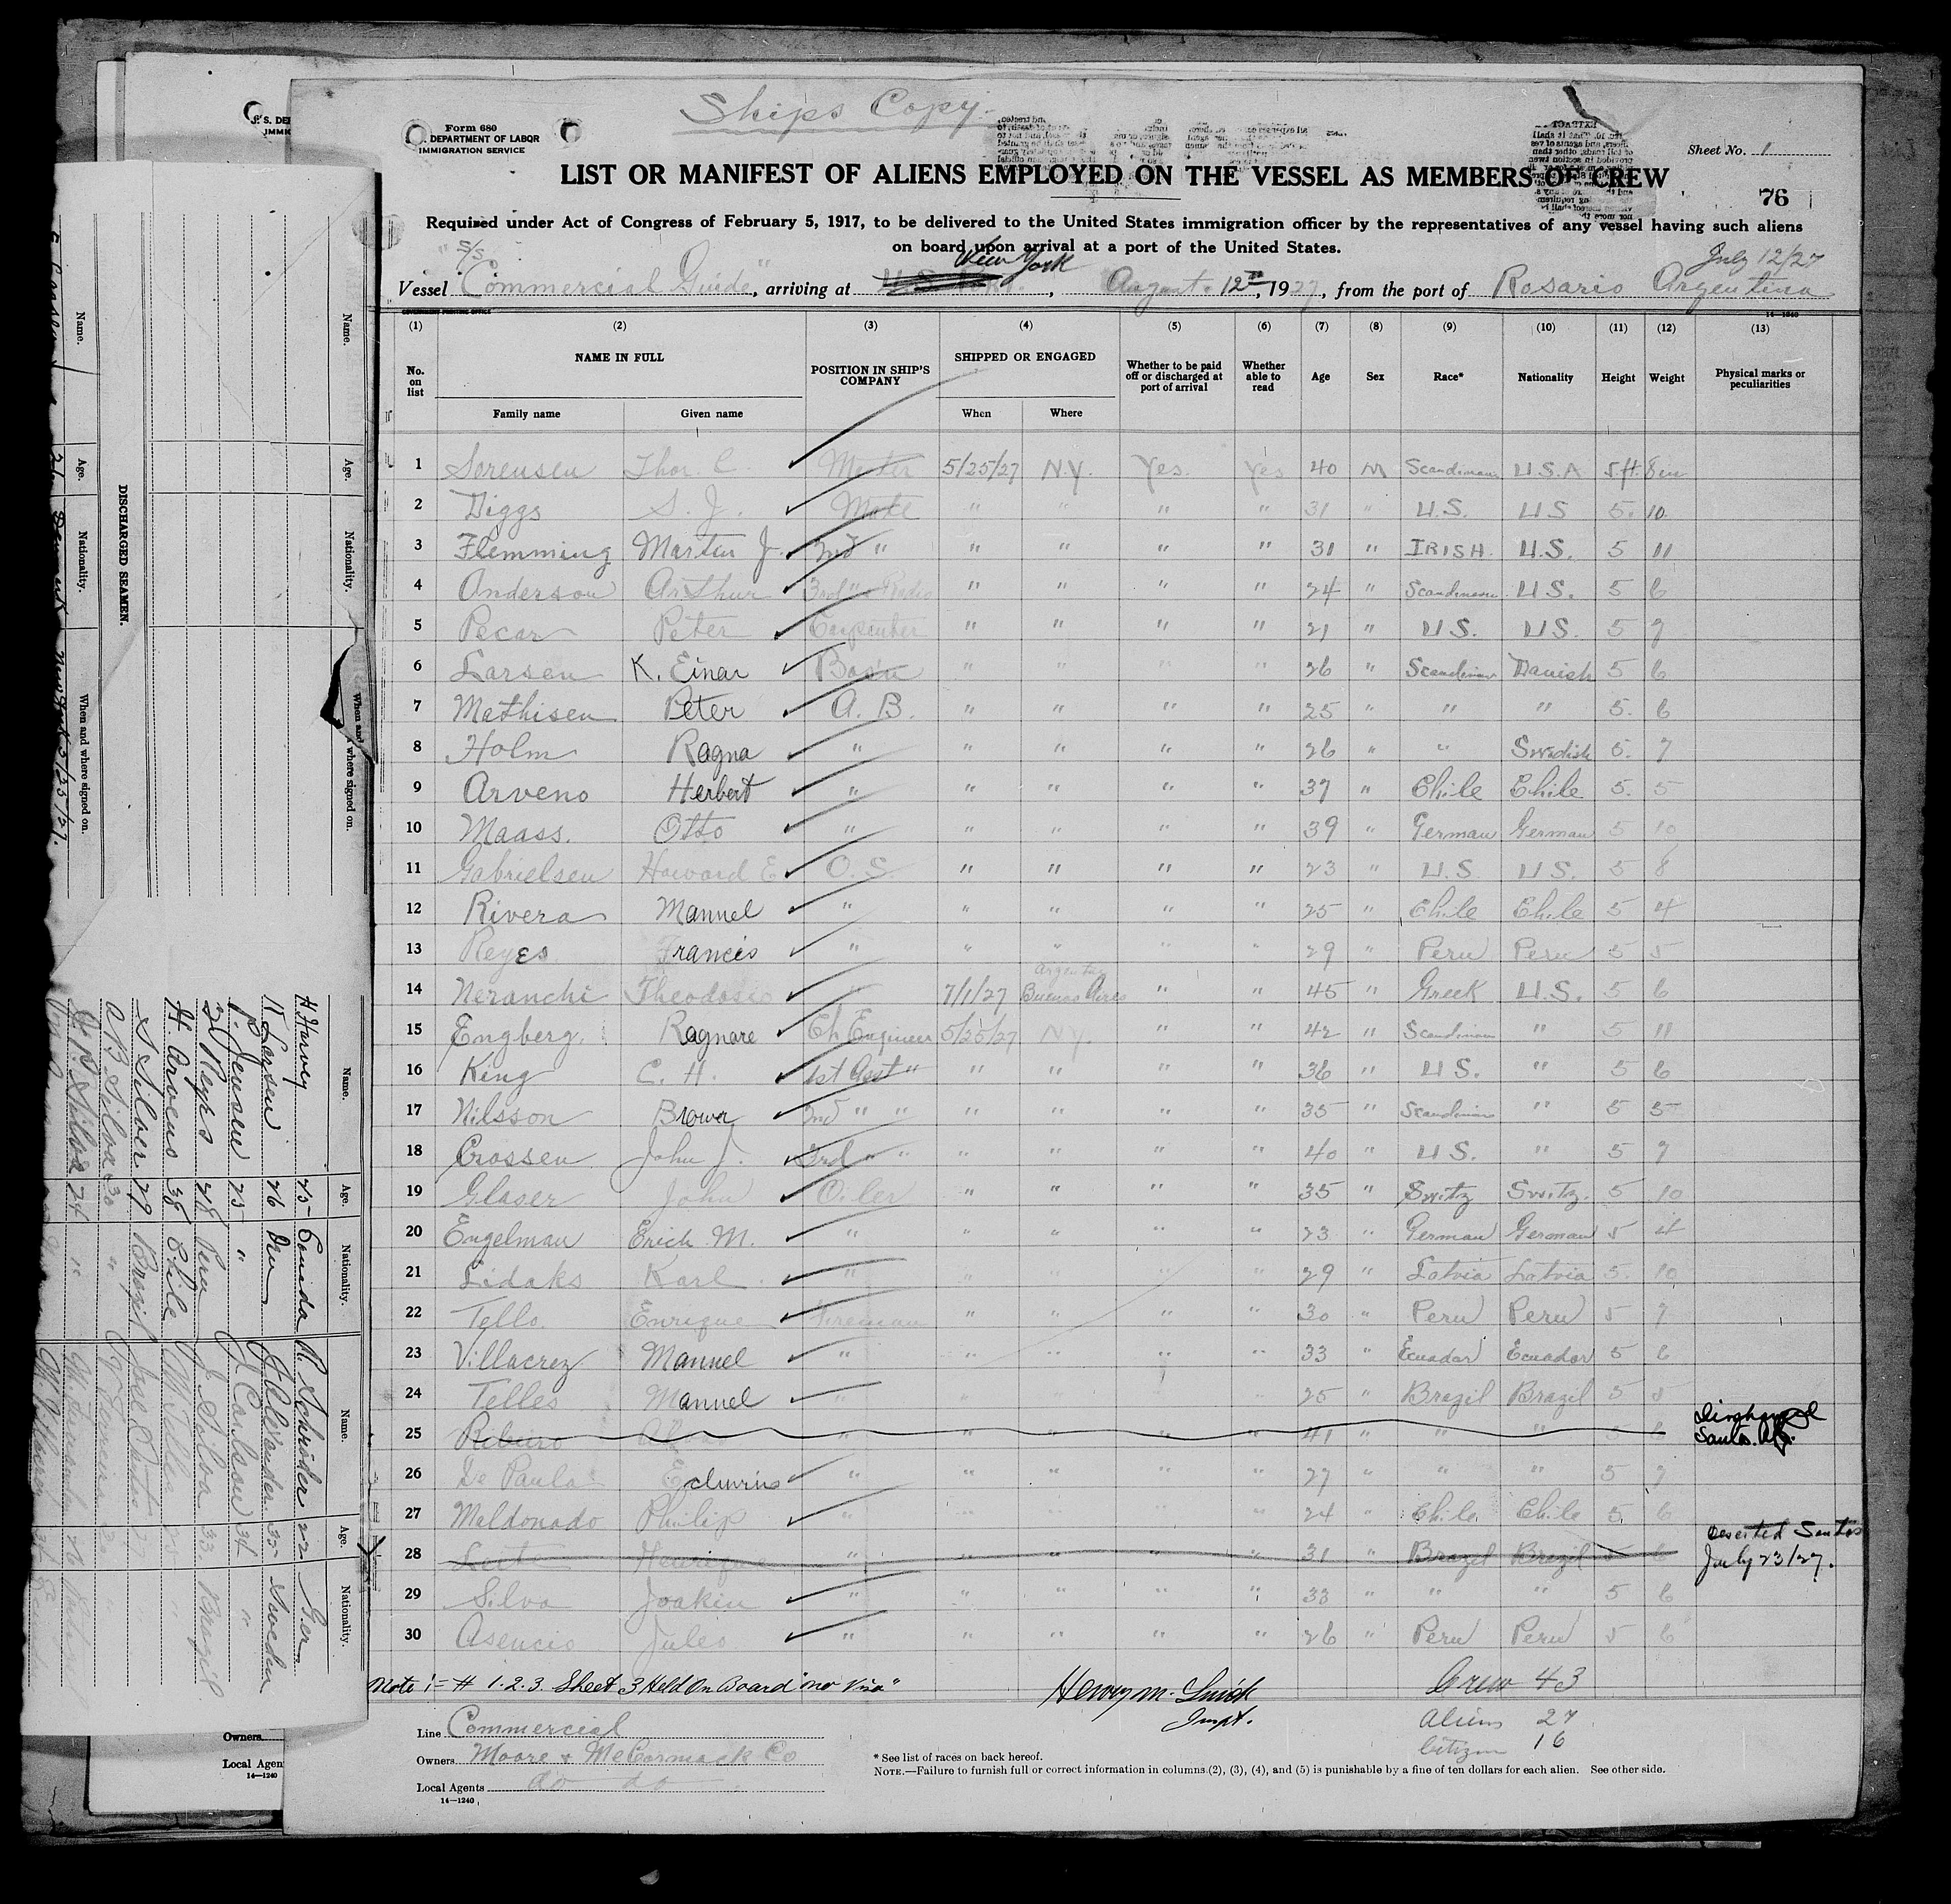 Ships Copy
Form 680
DEPARTMENT OF LABOR
IMMIGRATION SERVICE
Sheet No. 1
LIST OR MANIFEST OF ALIENS EMPLOYED ON THE VESSEL AS MEMBERS OF CREW
76
Required under Act of Congress of February 5, 1917, to be delivered to the United States immigration officer by the representatives of any vessel having such aliens
on board upon arrival at a port of the United States.
July 12/27
Vessel S/S "Commercial Guide", arriving at New York, August 12th, 1927, from the port of Rosario Argentina
(1) (2) (3) (4) (5) (6) (7) (8) (9) (10) (11) (12) (13)
No. on list NAME IN FULL POSITION IN SHIP'S COMPANY SHIPPED OR ENGAGED Whether to be paid off or discharged at port of arrival Whether able to read Age Sex Race* Nationality Height Weight Physical marks or peculiarities
Family name Given name When Where
1 Sorensen Thor. C. Master 5/25/27 N.Y. Yes. Yes 40 M U.S.A 5 ft. 8 in
2 Diggs S. J. Mate " " " " 31 " U.S. US 5. 10.
3 Flemming Martin J. 2nd " " " " " 31 " IRISH. U.S. 5 11
4 Anderson Arthur " " " " 24 " U.S. 5 6
5 Pecar Peter Carpenter " " " " 21 " U.S. U.S. 5 9
6 Larsen K. Einar Bosn " " " " 26 " Danish 5 6
7 Mathisen Peter A. B. " " " " 25 " " " 5. 6
8 Holm Ragna " " " " " 26 " " Swedish 5. 7
9 Arveno Herbert " " " " " 37 " Chile Chile 5. 5
10 Maass. Otto " " " " " 39 " German German 5 10
11 Gabrielsen Howard E O. S. " " " " 23 " U.S. U.S. 5 8
12 Rivera Manuel " " " " " 25 " Chile Chile 5 4
13 Reyes Francis " " " " " 29 " Peru Peru 5 5
14 Neranchi Theodosio " 7/1/27 Argentina Buenos Aires " " 45 " Greek U.S. 5 6
15 Engberg. Ragnare Ch Engineer 5/25/27 N.Y. " " 42 " " 5 11
16 King C. H. 1st Asst " " " " " 36 " U.S. " 5 6
17 Nilsson Brower 2nd " " " " " " 35 " " 5 5
18 Crossen John J. 3rd " " " " " " 40 " U.S. " 5 9
19 Glaser John Oiler " " " " 35 " Switz Switz. 5 10
20 Engelman Erich M. " " " " " 23 " German German 5 4
21 Lidaks Karl " " " " " 29 " Latvia Latvia 5. 10
22 Tello. Enrique Fireman " " " " 30 " Peru Peru 5 7
23 Villacrez Manuel " " " " " 33 " Ecuador Ecuador 5 6
24 Telles Manuel " " " " " 25 " Brazil Brazil 5 5
25 Ribeiro " " " " " 41 " " " 5 6 Santos
26 De Paula " " " " " 27 " " " 5 7
27 Maldonado Philip " " " " " 24 " Chile Chile 5 6
28 Henrique " " " " " 31 " Brazil Brazil 5 6 Deserted Santos July 23/27.
29 Silva Joakin " " " " " 33 " " " 5 6
30 Asencio Jules " " " " " 26 " Peru Peru 5 6
Note:- # 1.2.3. Sheet 3 Held On Board "no visa"
Henry M. Inspt.
Crew 43
Aliens 27
Citizen 16
Line Commercial
Owners Moore & McCormack Co
Local Agents do do
14—1240
* See list of races on back hereof.
NOTE.—Failure to furnish full or correct information in columns (2), (3), (4), and (5) is punishable by a fine of ten dollars for each alien. See other side.
DISCHARGED SEAMEN.
Name. Age. Nationality. When and where signed on.
Name. Age. Nationality. Name. Age. Nationality.
H. Harvey
K Larsen 26 Den
P. Jensen 25 "
H. Arveno 38 Chile
S Silver 29 Brazil
R. Schröder 22 Ger
J. Alexander 35 Sweden
J. Carlson 34 "
J. Silva 33 Brazil
Owners
Local Agen
14—1240